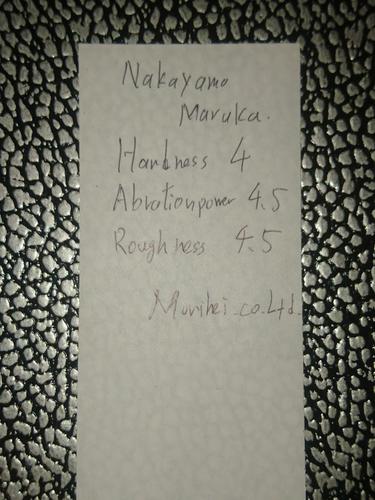 Nakayama
Maruka.
Hardness 4
Abrationpower 4.5
Roughness 4.5
Morihei.co.Ltd.